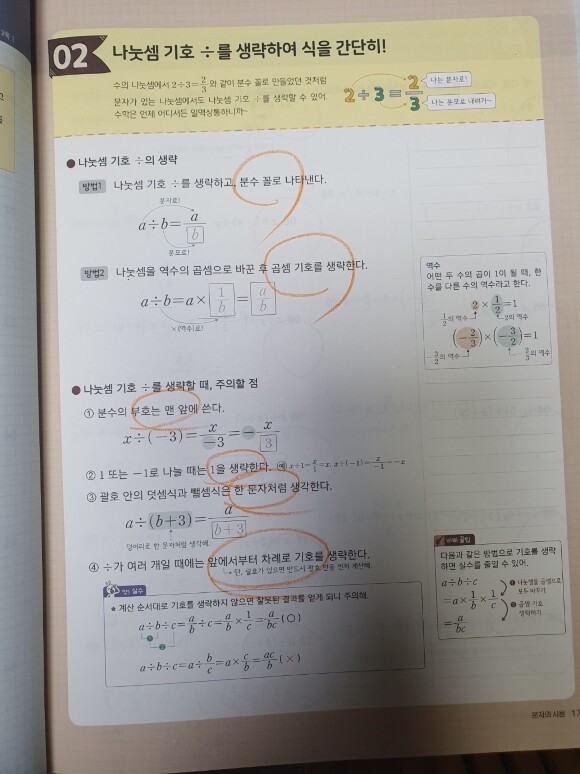 02 나눗셈 기호 ÷를 생략하여 식을 간단히!
수의 나눗셈에서 2÷3=2/3와 같이 분수 꼴로 만들었던 것처럼
문자가 있는 나눗셈에서도 나눗셈 기호 ÷를 생략할 수 있어.
수학은 언제 어디서든 일맥상통하니까~
2÷3=2/3
나는 분자로!
나는 분모로 내려가~
● 나눗셈 기호 ÷의 생략
방법1 나눗셈 기호 ÷를 생략하고, 분수 꼴로 나타낸다.
분자로!
a÷b=a/b
분모로!
방법2 나눗셈을 역수의 곱셈으로 바꾼 후 곱셈 기호를 생략한다.
a÷b=a×1/b=a/b
×(역수)로!
역수
어떤 두 수의 곱이 1이 될 때, 한
수를 다른 수의 역수라고 한다.
2×1/2=1
1/2의 역수 2의 역수
(-2/3)×(-3/2)=1
-3/2의 역수 -2/3의 역수
● 나눗셈 기호 ÷를 생략할 때, 주의할 점
① 분수의 부호는 맨 앞에 쓴다.
x÷(-3)=x/-3=-x/3
② 1 또는 -1로 나눌 때는 1을 생략한다. 예 x÷1=x/1=x, x÷(-1)=x/-1=-x
③ 괄호 안의 덧셈식과 뺄셈식은 한 문자처럼 생각한다.
a÷(b+3)=a/b+3
덩어리로 한 문자처럼 생각해.
④ ÷가 여러 개일 때에는 앞에서부터 차례로 기호를 생략한다.
단, 괄호가 있으면 반드시 괄호 안을 먼저 계산해.
앗! 실수
★ 계산 순서대로 기호를 생략하지 않으면 잘못된 결과를 얻게 되니 주의해.
a÷b÷c=a/b÷c=a/b×1/c=a/bc (○)
❶
❷
a÷b÷c=a÷b/c=a×c/b=ac/b (×)
바빠 꿀팁
다음과 같은 방법으로 기호를 생략
하면 실수를 줄일 수 있어.
a÷b÷c
=a×1/b×1/c
=a/bc
❶ 나눗셈을 곱셈으로
모두 바꾸기
❷ 곱셈 기호
생략하기
문자의 사용 17